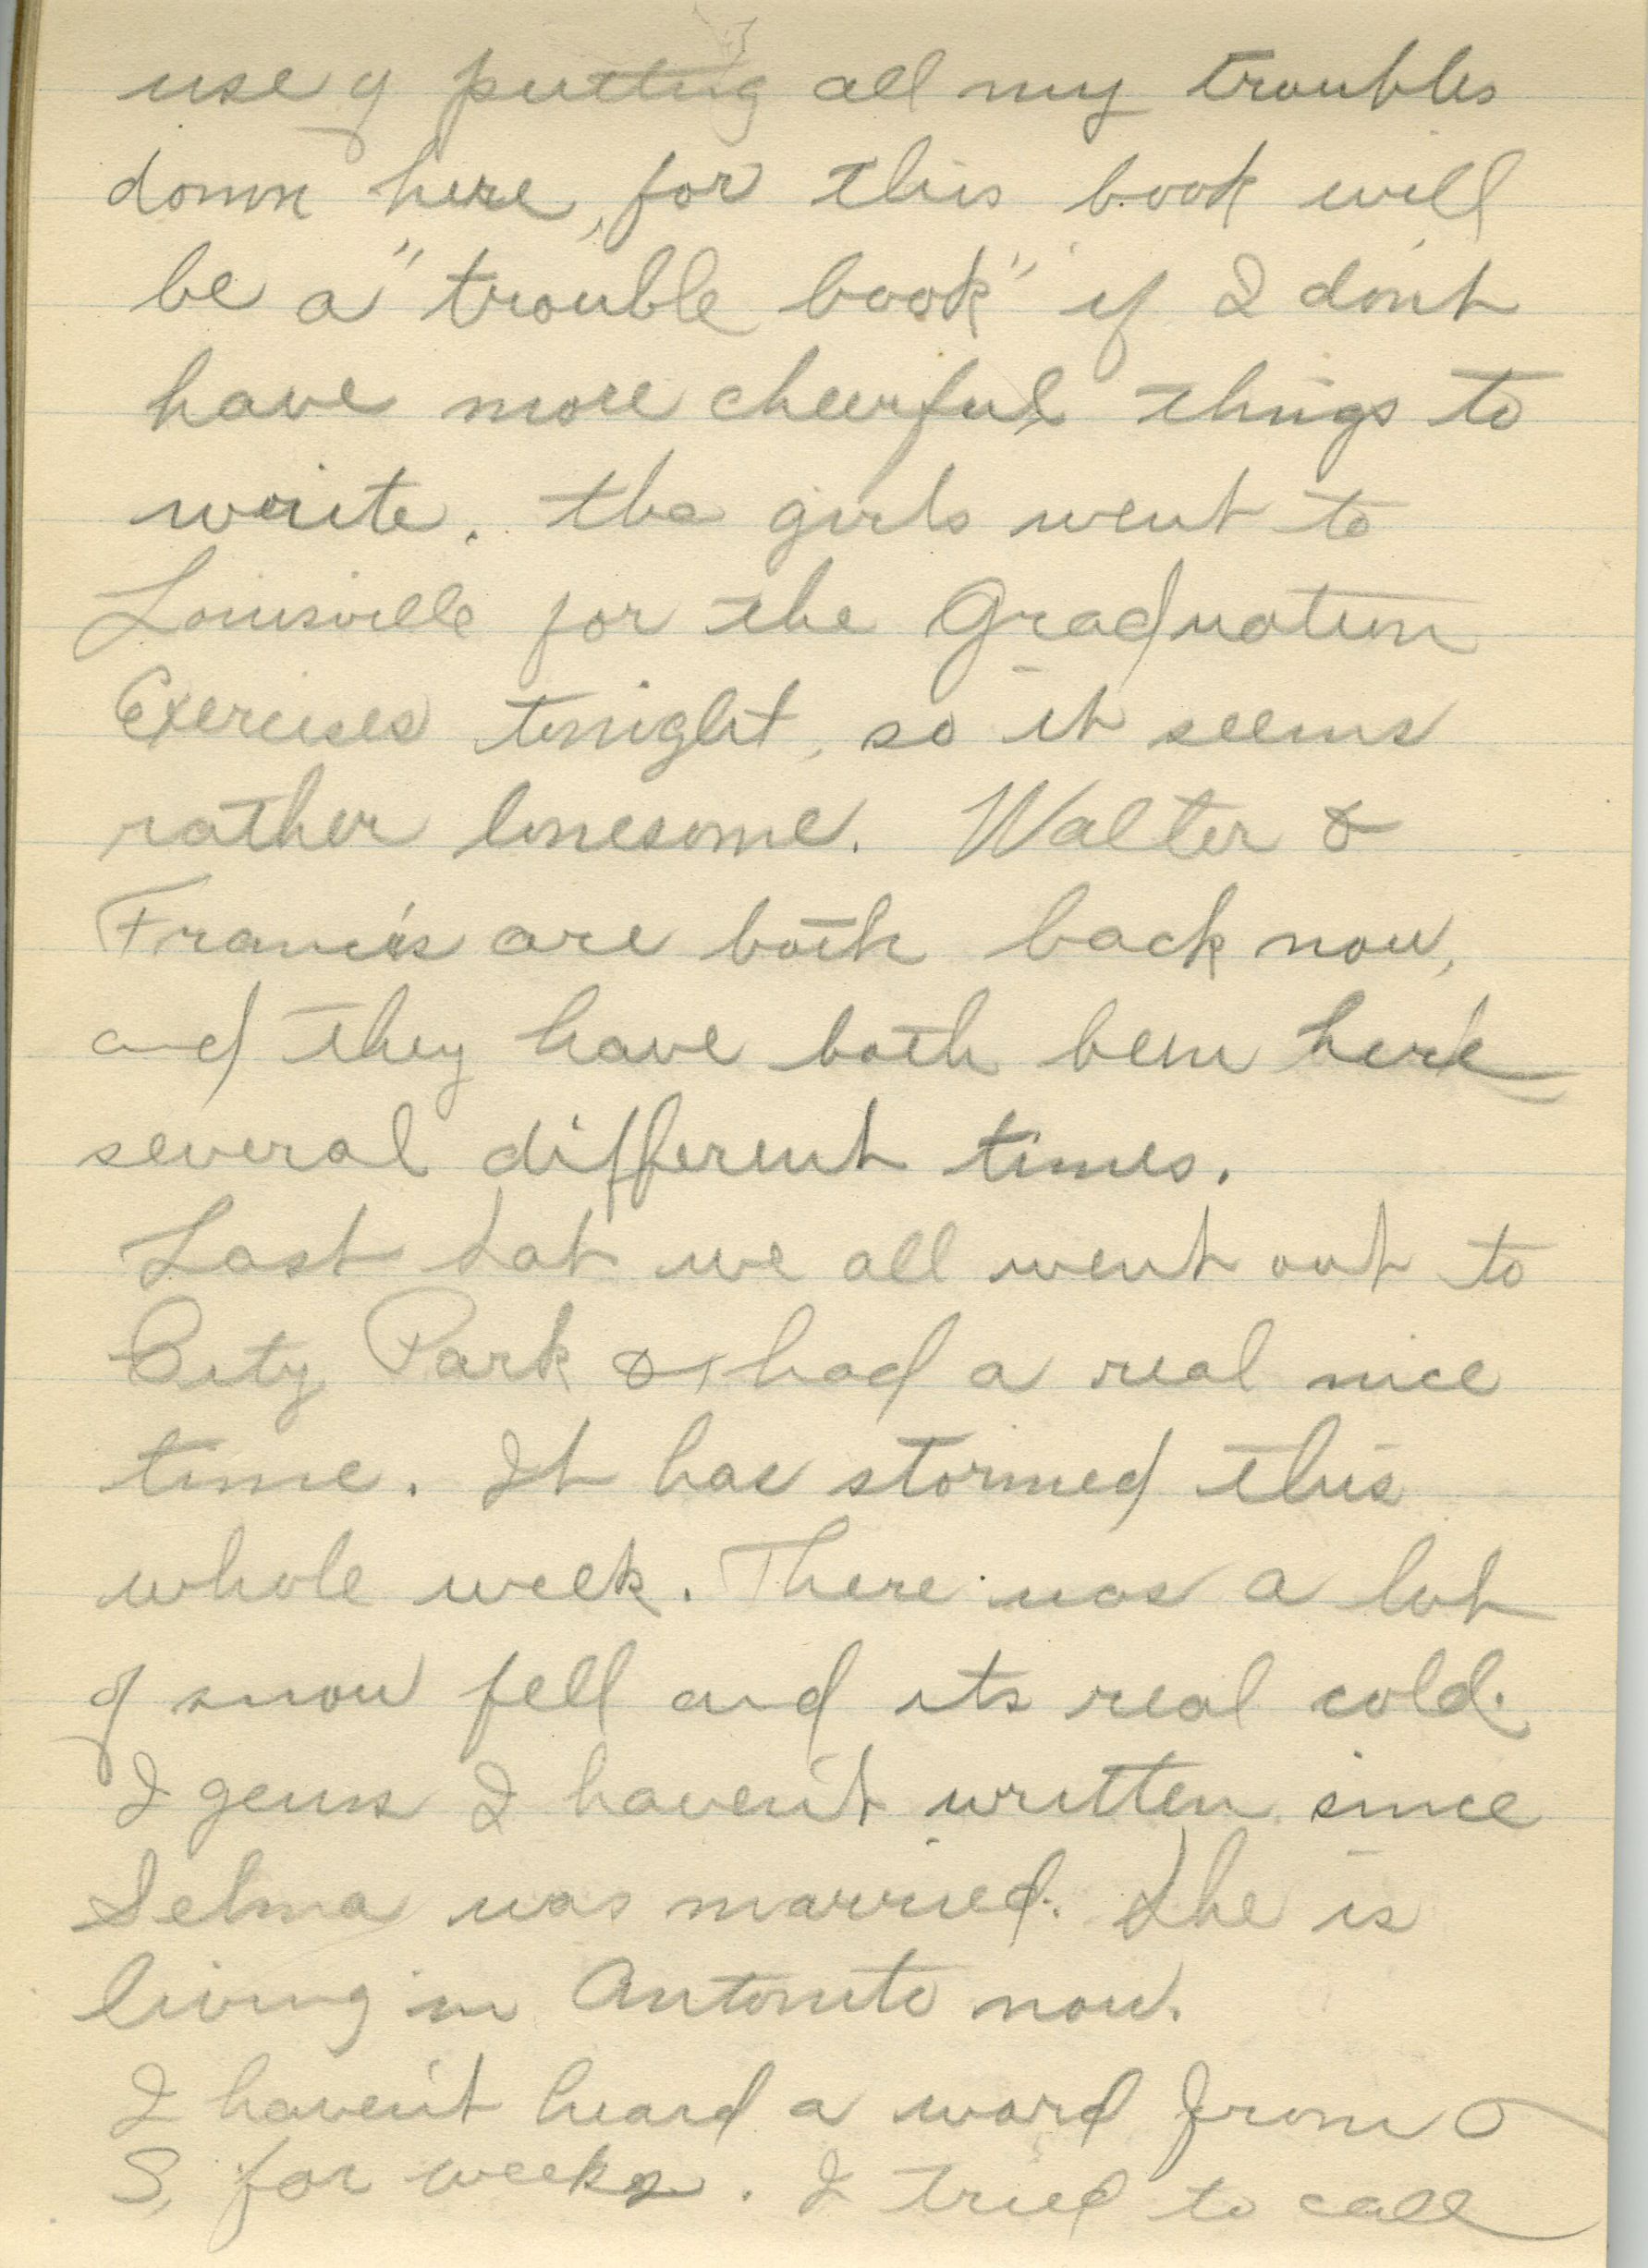 use of putting all my troubles
down here, for this book will
be a "trouble book" if I don't
have more cheerful things to
write. the girls went to
Louisville for the Graduation
Exercises tonight, so it seems
rather lonesome. Walter &
Francis are both back now,
and they have both been here
several different times.
Last Sat we all went out to
City Park & had a real nice
time. It has stormed this
whole week. There was a lot
of snow fell and its real cold.
I guess I haven't written since
Selma was married. She is
living in Antonito now.
I haven't heard a word from O
S, for weeks. I tried to call